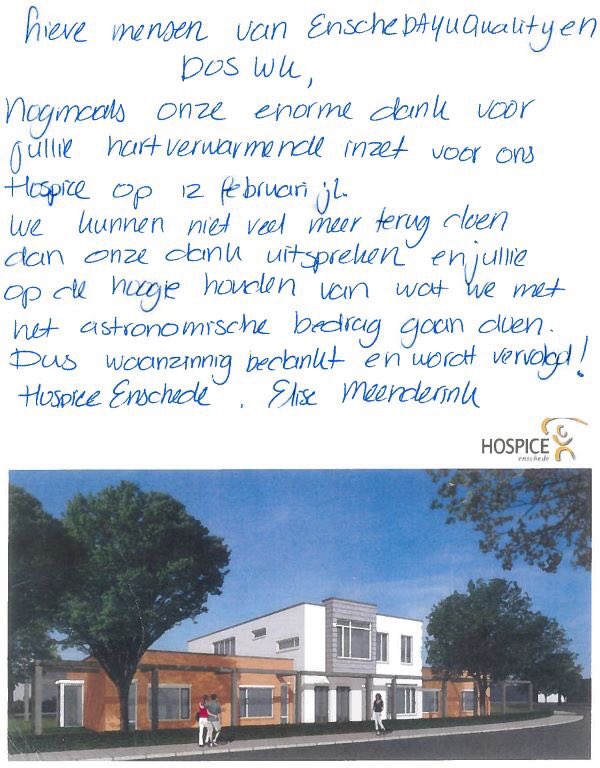 Lieve mensen van EnscheDAY4UQuality en
DOS WK,
Nogmaals onze enorme dank voor
jullie hartverwarmende inzet voor ons
Hospice op 12 februari jl.
We kunnen niet veel meer terug doen
dan onze dank uitspreken en jullie
op de hoogte houden van wat we met
het astronomische bedrag gaan doen.
Dus waanzinnig bedankt en wordt vervolgd!
Hospice Enschede, Elise Meenderink
HOSPICE
enschede